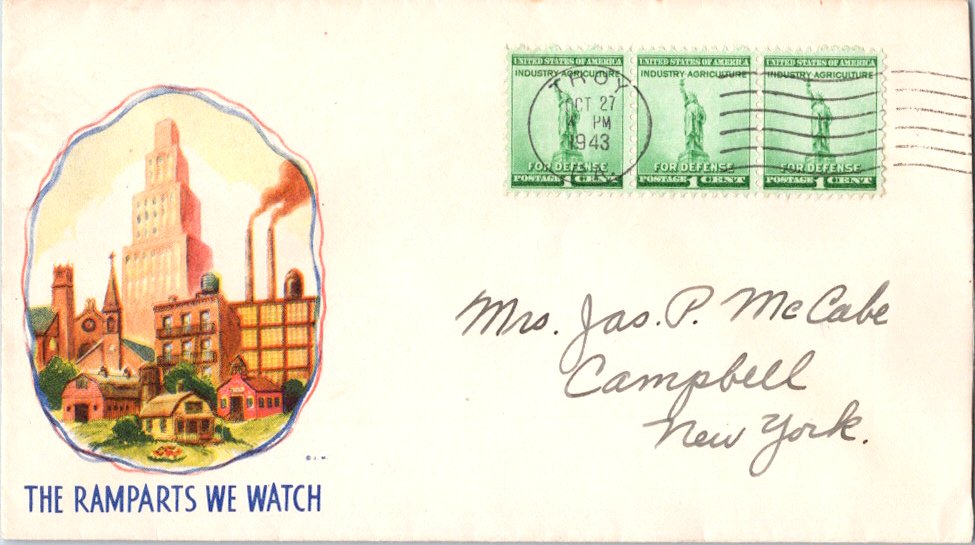 UNITED STATES OF AMERICA UNITED STATES OF AMERICA UNITED STATES OF AMERICA
INDUSTRY AGRICULTURE INDUSTRY AGRICULTURE INDUSTRY AGRICULTURE
FOR DEFENSE FOR DEFENSE FOR DEFENSE
POSTAGE 1 CENT POSTAGE 1 CENT POSTAGE 1 CENT
TROY
OCT 27
4 PM
1943
PA.
Mrs. Jas. P. McCabe
Campbell
New York.
THE RAMPARTS WE WATCH